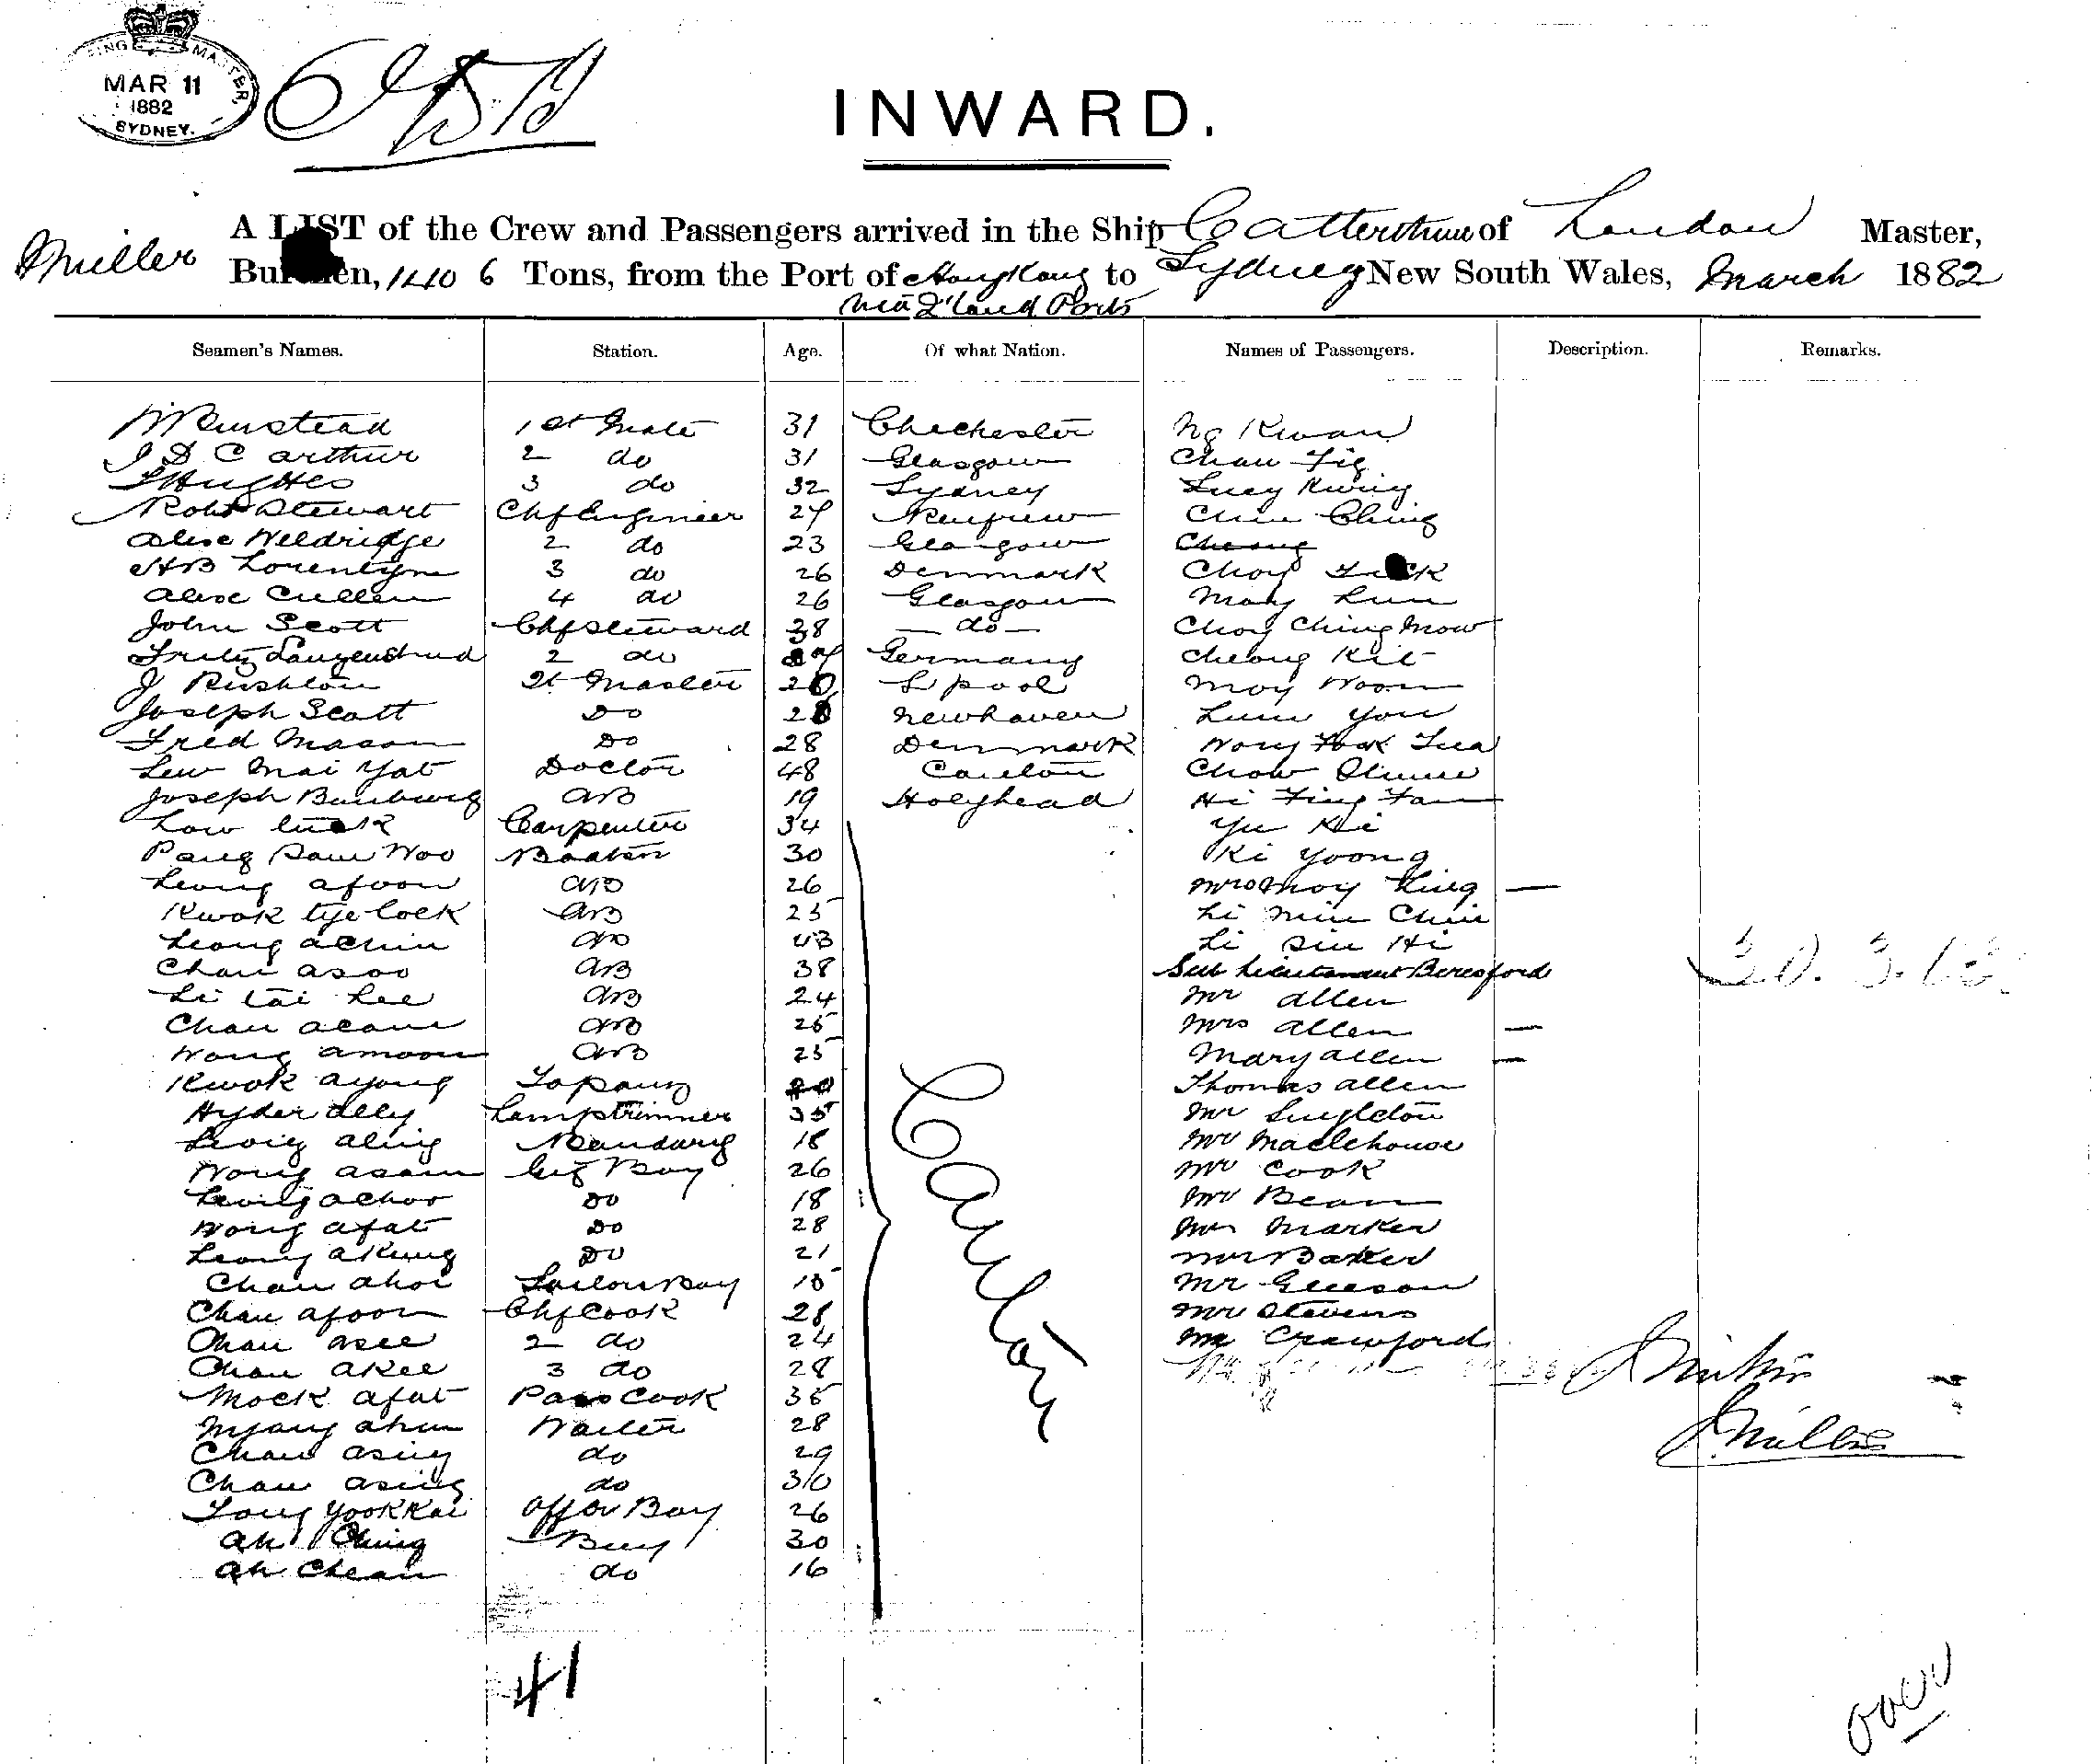 MAR 11
1882
SYDNEY.
INWARD.
A LIST of the Crew and Passengers arrived in the Ship Catterthun of London Master,
Miller Burthen, 1406 Tons, from the Port of Hong Kong to Sydney New South Wales, March 1882
via Q'land Ports
Seamen's Names. Station. Age. Of what Nation. Names of Passengers. Description. Remarks.
Binstead 1st Mate 31 Chichester Ng Kwan
J D C Arthur 2 do 31 Glasgow Chau Fig
Hughes 3 do 32 Sydney Kwing
Robt Stewart Chf Engineer 29 Renfrew Chin Ching
Alexr Weldridge 2 do 23 Glasgow Cheong
3 do 26 Denmark Choy
Alexr Cullen 4 do 26 Glasgow Moy Lun
John Scott Chf Steward 38 - do - Choy Ching Mow
Fritz 2 do Germany Cheong Kit
J Rushton Qt Master L'pool Moy Woon
Joseph Scott Do Newhaven Lum You
Fred Mason Do 28 Denmark Wong
Lew Mai Yat Doctor 48 Canton Chow
Joseph AB 19 Holyhead Hi Ting
Low Carpenter 34 Yu Ki
Pang Sam Woo Boatsn 30 Ki Yoong
Leong Afoon AB 26 Mrs Moy King —
Kwok Tye Cock AB 25 Li Min Chin
Leong Achin AB 43 Li Sin Hi
Chan Asoo AB 38 Sub Lieutenant Beresford
Li Tai Lee AB 24 Mr Allen
Chan Acam AB 25 Mrs Allen —
Wong Amoon AB 25 Mary Allen —
Kwok Ayong Topaung Thomas Allen
Hyder Ally Lamptrimmer 35 Mr Singleton
Leong Aling Bandary 18 Mr Maclehouse
Wong Asam Gig Boy 26 Mr Cook
Leong Achoo Do 18 Mr Bean
Wong Afat Do 28 Mr Marker
Leong Akung Do 21 Mr Baker
Chan Ahoi Sailors Boy 15 Mr Gleeson
Chan Afoon Chf Cook 28 Mr Stevens
Chan Asee 2 do 24 Mr Crawford
Chan Akee 3 do 28
Mock Afat Pass Cook 35
Ahun Waiter 28
Chan Asing do 29
Chan Asing do 30
Tong Yook Kai Offcr Boy 26
Ah Ching Boy 30
Ah Chean do 16
Canton
Miller
41
over